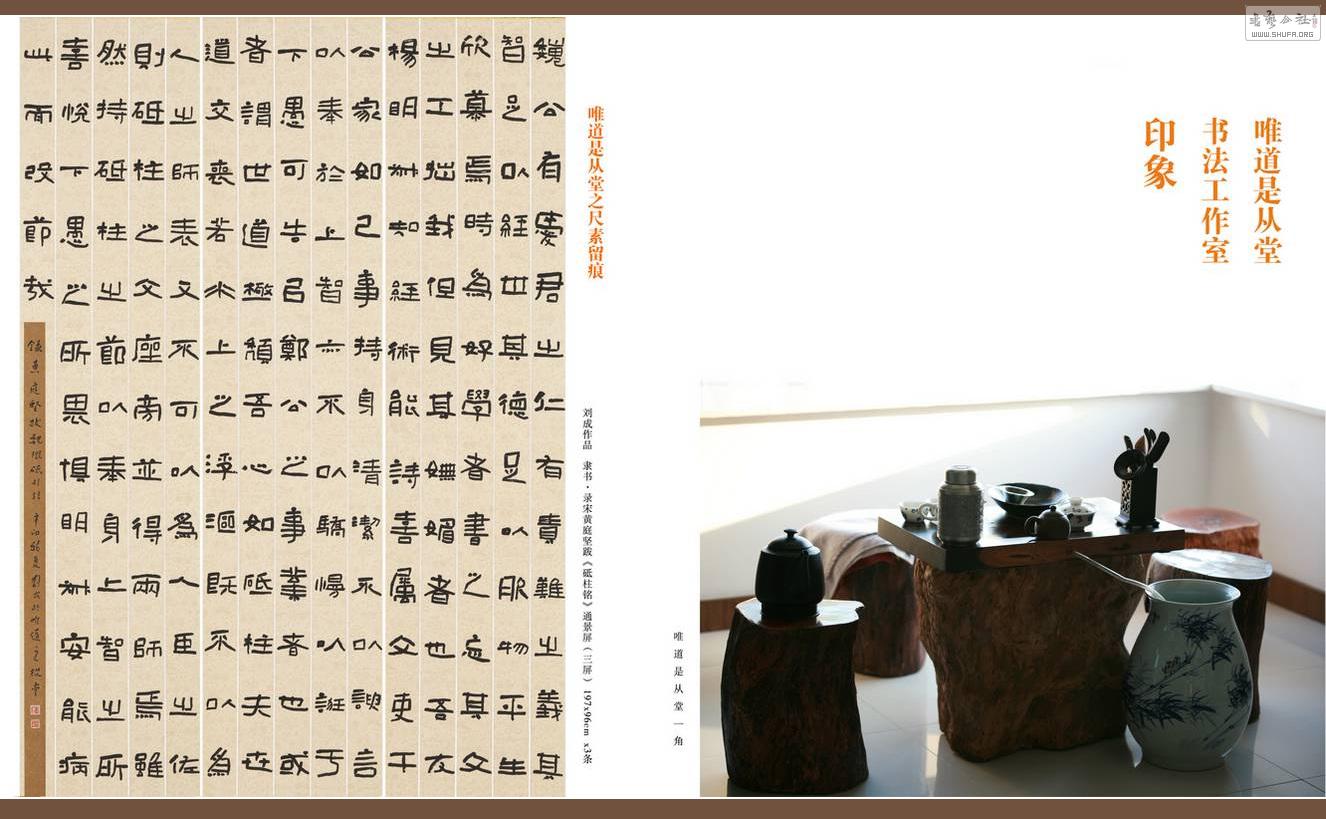 唯道是从堂
书法工作室
印象
唯道是从堂一角
唯道是从堂之尺素留痕
刘成作品 隶书·录宋黄庭坚跋《砥柱铭》通景屏（三屏） 197x96cm x3条
魏公有愛君之仁有責難之義其
智足以經世其德足以服物平生
欣慕焉時為好學者書之忘其文
之工拙我但見其嫵媚者也吾友
楊明叔知經術能詩喜屬文吏干
公家如己事持身清潔不以諛言
以奉於上智亦不以驕慢以誑于
下愚可告吕鄭公之事業者也或
者謂世道極頹吾心如砥柱夫世
道交喪若水上之浮漚既不以為
人之師表又不可以為人臣之佐
則砥柱之文座旁並得兩師焉雖
然持砥柱之節以奉身上智之所
喜悅下愚之所畏懼明叔安能病
此而改節哉
WWW.SHUFA.ORG